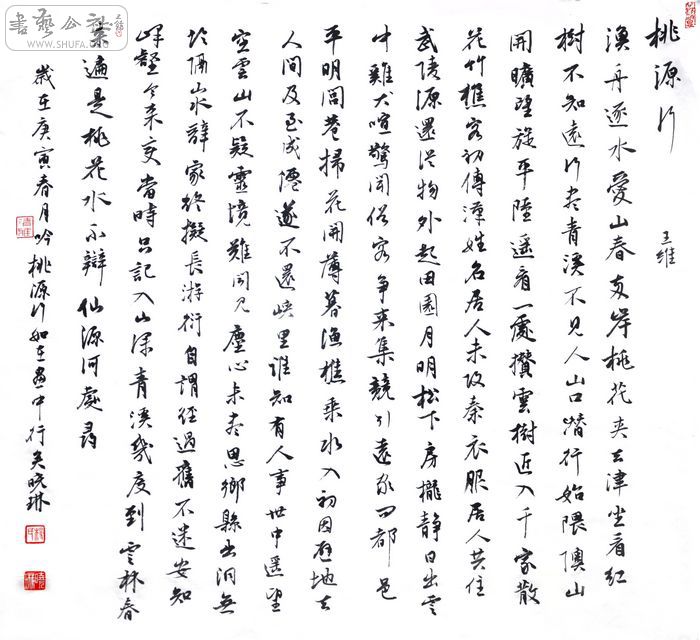 桃源行
王維
漁舟逐水愛山春两岸桃花夹去津坐看紅
樹不知遠行盡青溪不見人山口潛行始隈隩山
開曠望旋平陸遥看一處攢雲樹近入千家散
花竹樵客初傳漢姓名居人未改秦衣服居人共住
武陵源還從物外起田園月明松下房櫳靜日出雲
中雞犬喧驚聞俗客爭来集競引還家问都邑
平明閭巷掃花開薄暮漁樵乘水入初因避地去
人間及至成僊遂不還峽里誰知有人事世中遥望
空雲山不疑靈境難聞見塵心未盡思鄉縣出洞無
隔山水辭家終擬長游衍自謂經過舊不迷安知
峰壑今来變當時只記入山深青溪幾度到雲林春
来遍是桃花水不辯仙源何處尋
歲在庚寅春月吟桃源行如在畫中行吴曉琳
書藝公社
WWW.SHUFA.ORG